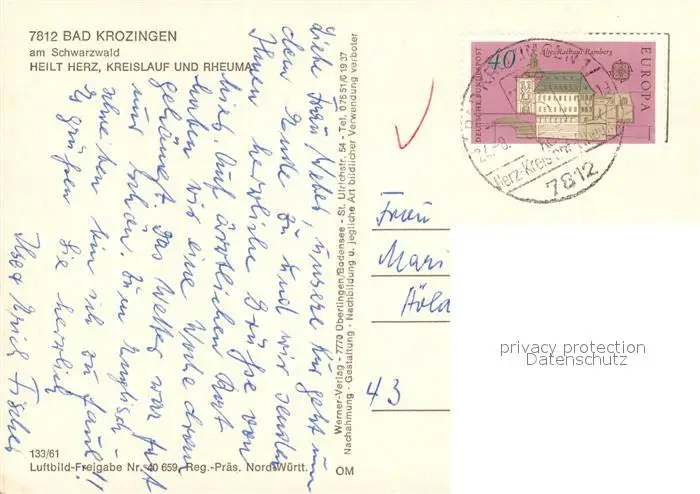 7812 BAD KROZINGEN
am Schwarzwald
HEILT HERZ, KREISLAUF UND RHEUMA
Liebe Frau Weber, unsere Kur geht nun
dem Ende zu und wir senden
Ihnen herzliche Grüße von
hier. Auf ärztlichen Rat
haben wir eine Woche dran
gehängt. Das Wetter war fast
nur schön. Zum
schreiben bin ich zu faul!!
Es grüßen Sie herzlich
Ihre Fischer
133/61
Luftbild-Freigabe Nr. 40 659, Reg.-Präs. Nord-Württ.
OM
Werner-Verlag - 7770 Überlingen/Bodensee - St. Ulrichstr. 54 - Tel. 07551/61937
Nachahmung - Gestaltung - Nachbildung u. jegliche Art bildlicher Verwendung verboter
DEUTSCHE BUNDESPOST
40
Altes Rathaus Bamberg
EUROPA
Herz-Kreis
7812
Frau
Mari
43
privacy protection
Datenschutz